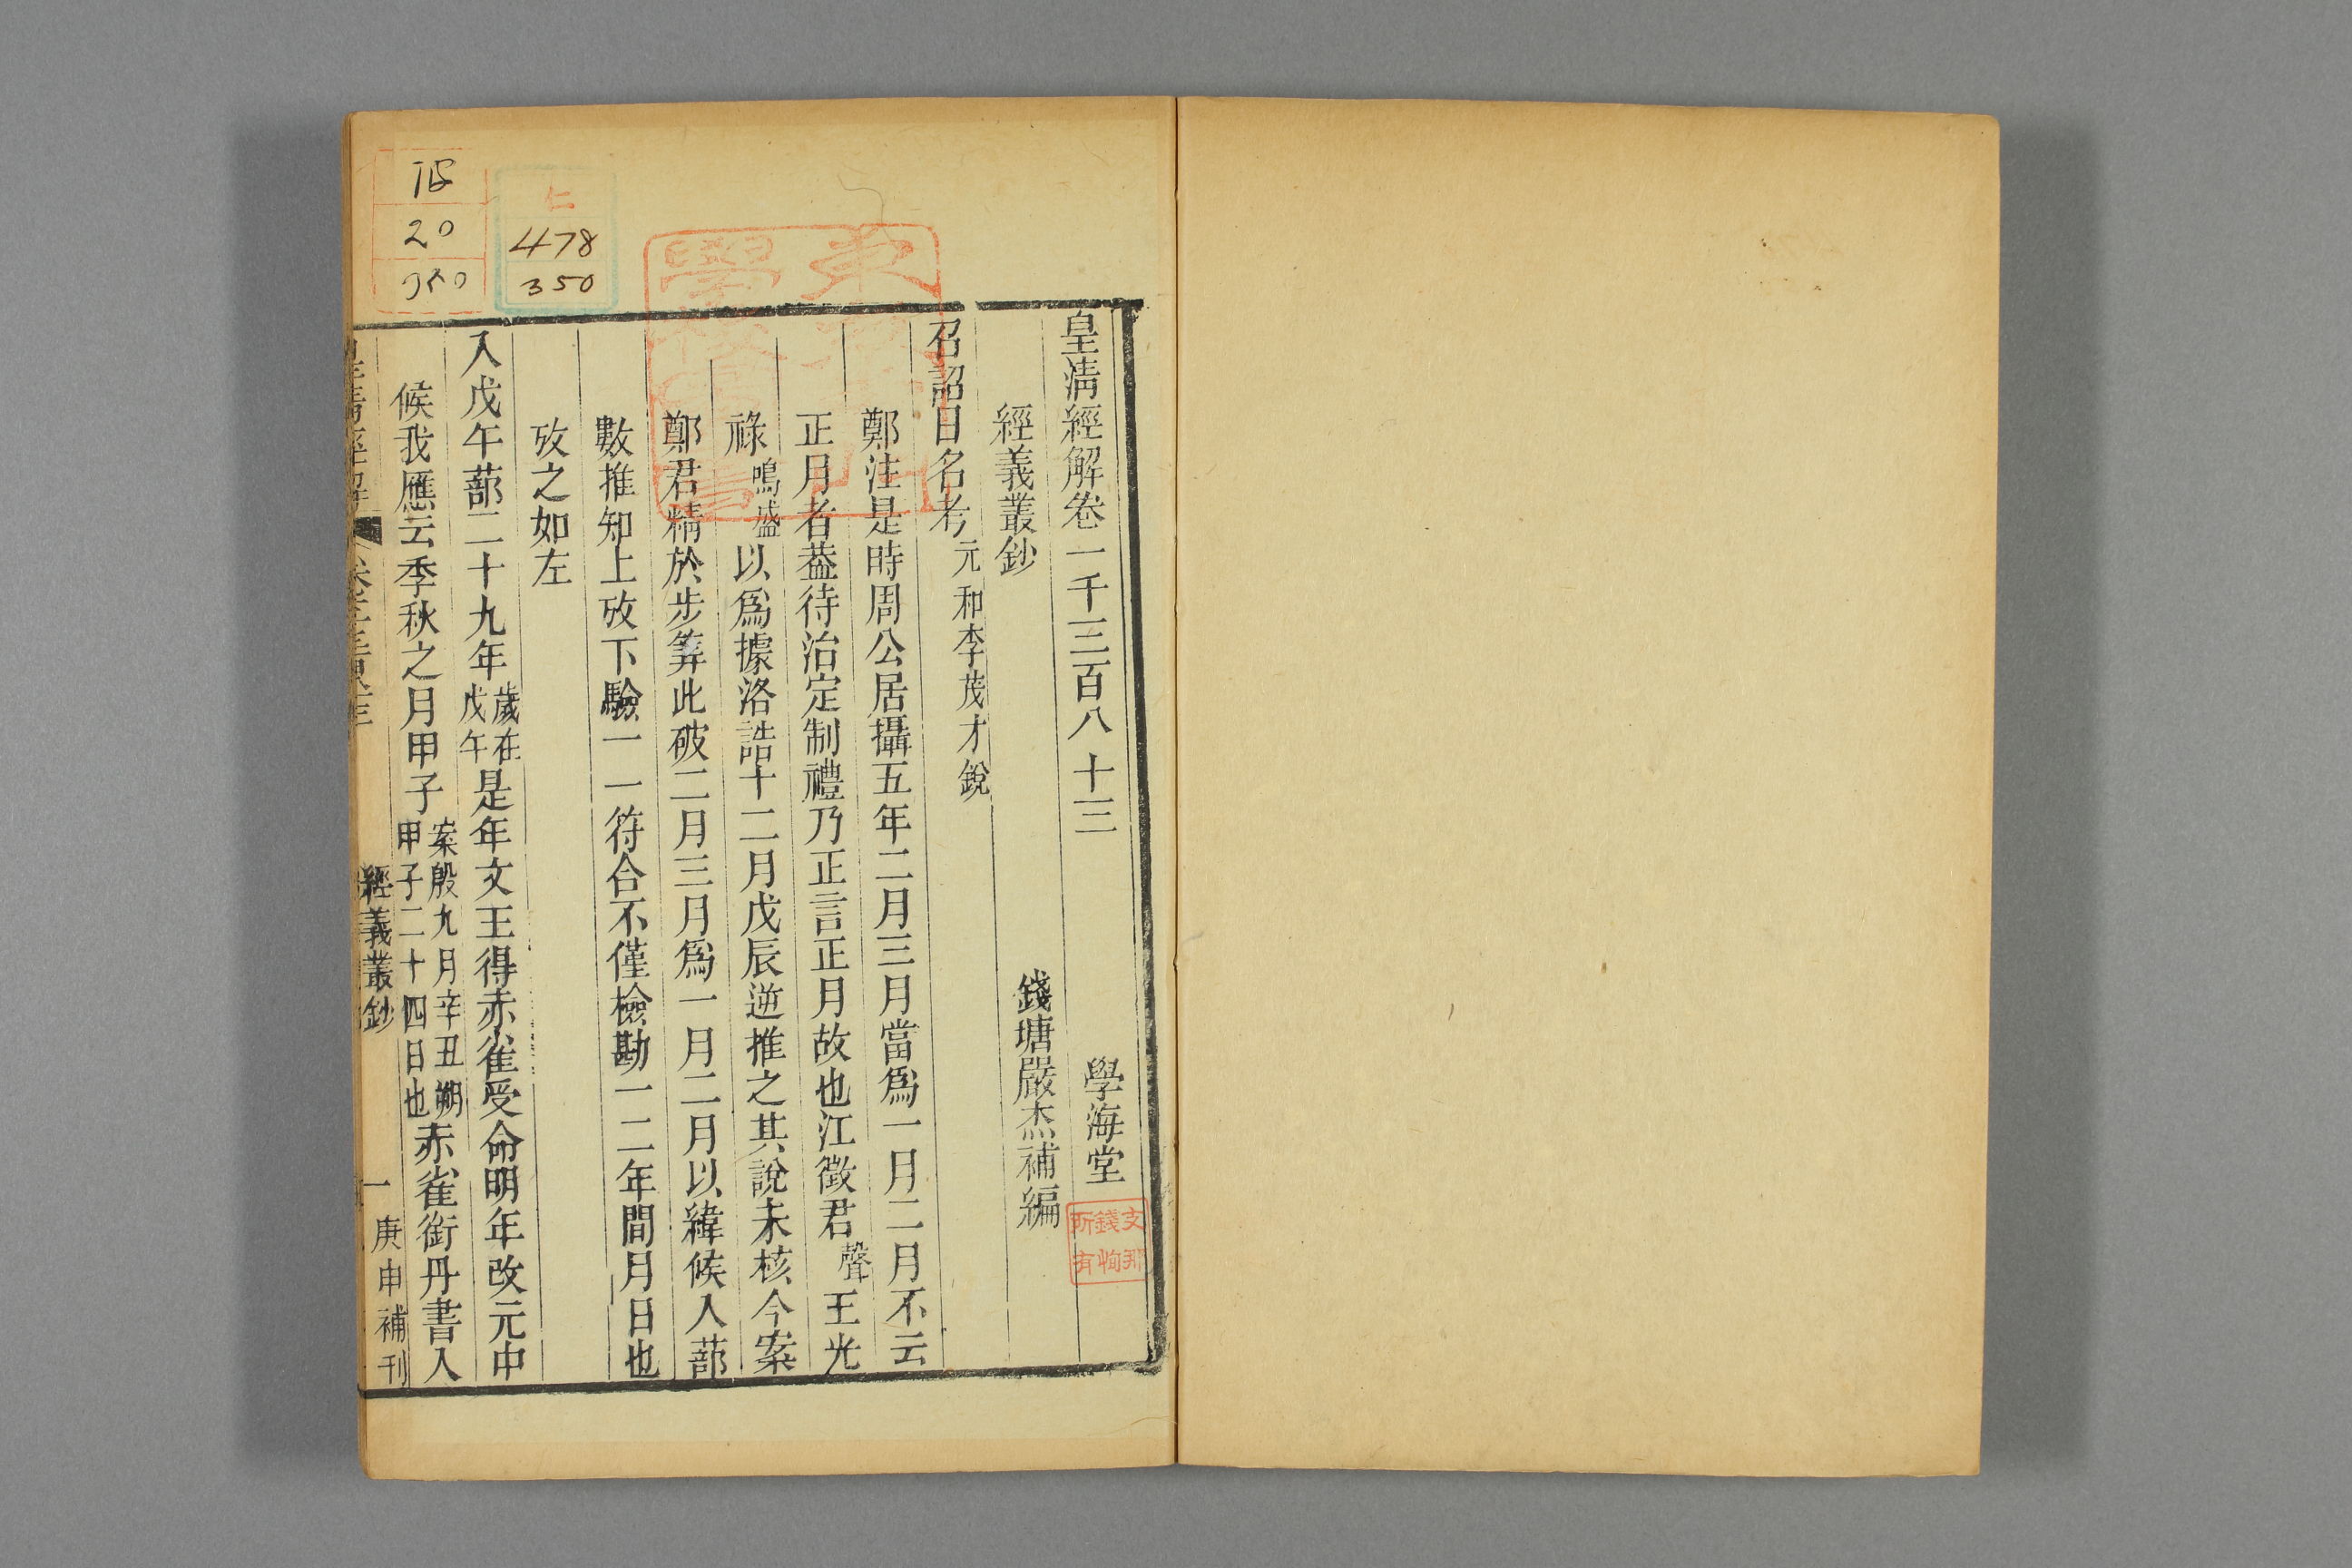 皇清經解卷一千三百八十三 學海堂
經義叢鈔 錢塘嚴杰補編
召詔日名考 元和李茂才銳
鄭注是時周公居攝五年二月三月當爲一月二月不云
正月者葢待治定制禮乃正言正月故也江徵君聲王光
祿鳴盛以爲據洛誥十二月戊辰逆推之其說未核今案
鄭君精於步筭此破二月三月爲一月二月以緯候入蔀
數推知上攷下驗一一符合不僅檢勘一二年間月日也
攷之如左
入戊午蔀二十九年歲在戊午是年文王得赤雀受命明年改元中
候我應云季秋之月甲子案殷九月辛丑朔甲子二十四日也赤雀銜丹書入
經義叢鈔 一 庚申補刊
支那錢恂所有
仁
478
350
20